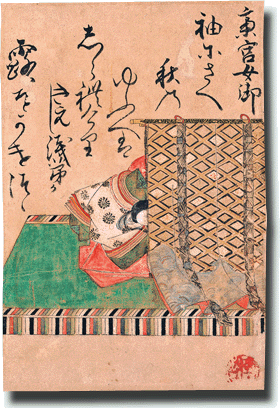 斎宮女御
袖にさへ
秋の
ゆふへは
しられけり
きえし浅茅か
露をかけつゝ